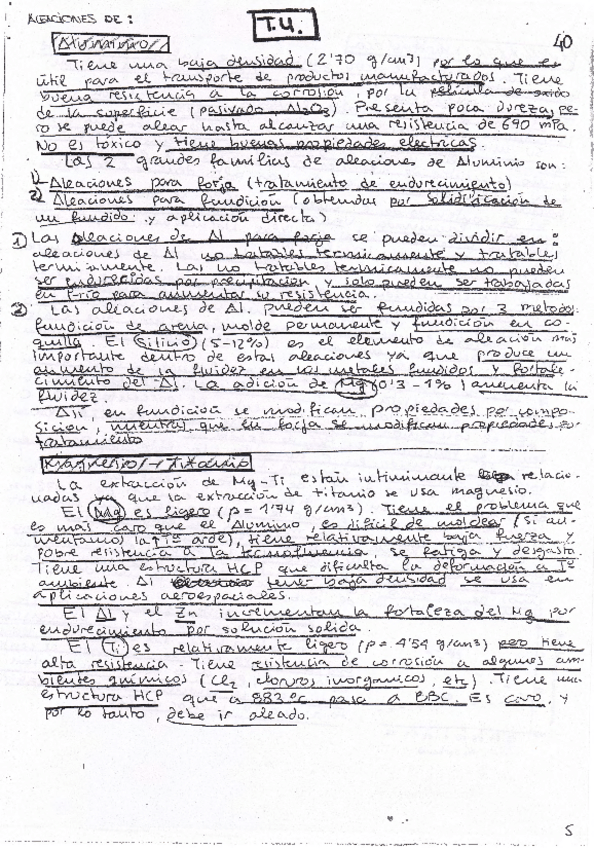 ALEACIONES DE:
T.4.
40
Aluminio
Tiene una baja densidad (2'70 g/cm3) por lo que es
útil para el transporte de productos manufacturados. Tiene
buena resistencia a la corrosión, por la película de óxido
de la superficie (pasivado Al2O3). Presenta poca dureza, pe-
ro se puede alear hasta alcanzar una resistencia de 690 mPa.
No es tóxico y tiene buenas propiedades electricas.
Las 2 grandes familias de aleaciones de Aluminio son:
1) Aleaciones para forja (tratamiento de endurecimiento)
2) Aleaciones para fundición (obtenidas por solidificación de
un fundido y aplicación directa)
1) Las aleaciones de Al para forja se pueden dividir en:
aleaciones de Al no tratables termicamente y tratables
termicamente. Las no tratables termicamente no pueden
ser endurecidas por precipitación y solo pueden ser trabajadas
en frío para aumentar su resistencia.
2) Las aleaciones de Al. pueden ser fundidas por 3 metodos:
fundición de arena, molde permanente y fundición en co-
quilla. El Silicio (5-12%) es el elemento de aleación más
importante dentro de estas aleaciones ya que produce un
aumento de la fluidez en los metales fundidos y fortale-
cimiento del Al. La adición de Mg (0'3-1%) aumenta la
fluidez.
Así, en fundición se modifican propiedades por compo-
sición, mientras que en forja se modifican propiedades por
tratamiento
Magnesio - Titanio
La extracción de Mg-Ti están intimamente relacio-
nadas ya que la extracción de titanio se usa magnesio.
El Mg es ligero (ρ=1'74 g/cm3). Tiene el problema que
es más caro que el Aluminio, es dificil de moldear (si au-
mentamos la ↑Tª arde), tiene relativamente baja fuerza y
pobre resistencia a la termofluencia, se fatiga y desgasta.
Tiene una estructura HCP que dificulta la deformación a Tª
ambiente. Al tener baja densidad se usa en
aplicaciones aeroespaciales.
El Al y el Zn incrementan la fortaleza del Mg por
endurecimiento por solución solida.
El Ti es relativamente ligero (ρ=4'54 g/cm3) pero tiene
alta resistencia. Tiene resistencia de corrosión a algunos am-
bientes químicos (Cl2, cloruros inorganicos, etc). Tiene una
estructura HCP que a 883ºc pasa a BBC. Es caro, y
por lo tanto, debe ir aleado.
5